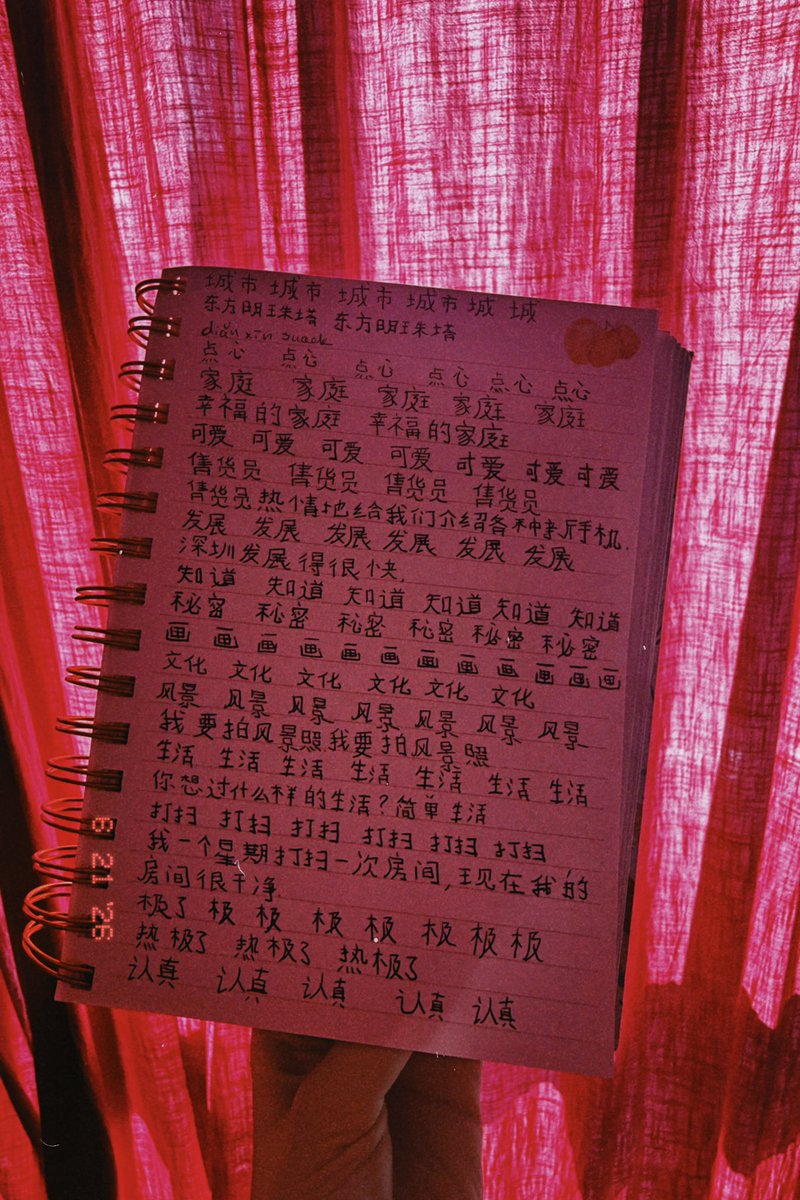 城市 城市 城市 城市 城 城
东方明珠塔 东方明珠塔
diǎn xīn snack
点心 点心 点心 点心 点心 点心
家庭 家庭 家庭 家庭 家庭
幸福的家庭 幸福的家庭
可爱 可爱 可爱 可爱 可爱 可爱 可爱
售货员 售货员 售货员 售货员
售货员热情地给我们介绍各种手机.
发展 发展 发展 发展 发展 发展
深圳发展得很快.
知道 知道 知道 知道 知道 知道
秘密 秘密 秘密 秘密 秘密 秘密
画 画 画 画 画 画 画 画 画 画 画 画
文化 文化 文化 文化 文化 文化
风景 风景 风景 风景 风景 风景 风景
我要拍风景照我要拍风景照
生活 生活 生活 生活 生活 生活 生活
你想过什么样的生活?简单生活
打扫 打扫 打扫 打扫 打扫 打扫
我一个星期打扫一次房间,现在我的
房间很干净.
极了 极 极 极 极 极 极 极
热极了 热极了 热极了
认真 认真 认真 认真 认真
6 21 '26